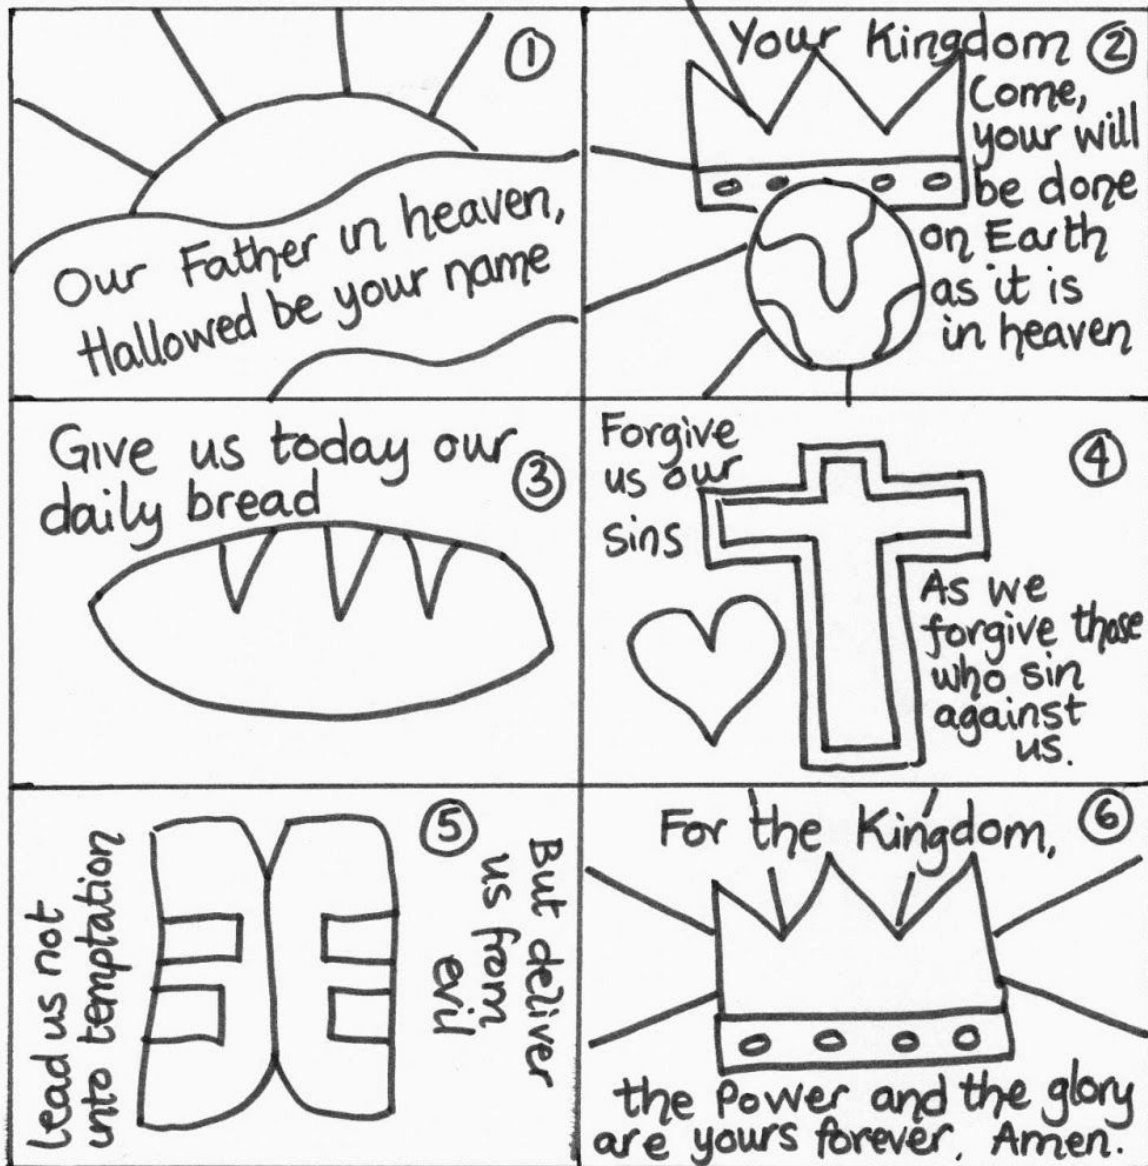 ①
Our Father in heaven,
Hallowed be your name
Your Kingdom ②
Come,
your will
be done
on Earth
as it is
in heaven
Give us today our
daily bread ③
Forgive
us our
sins
④
As we
forgive those
who sin
against
us.
Lead us not
into temptation
⑤
But deliver
us from
evil
For the Kingdom, ⑥
the Power and the glory
are yours forever, Amen.